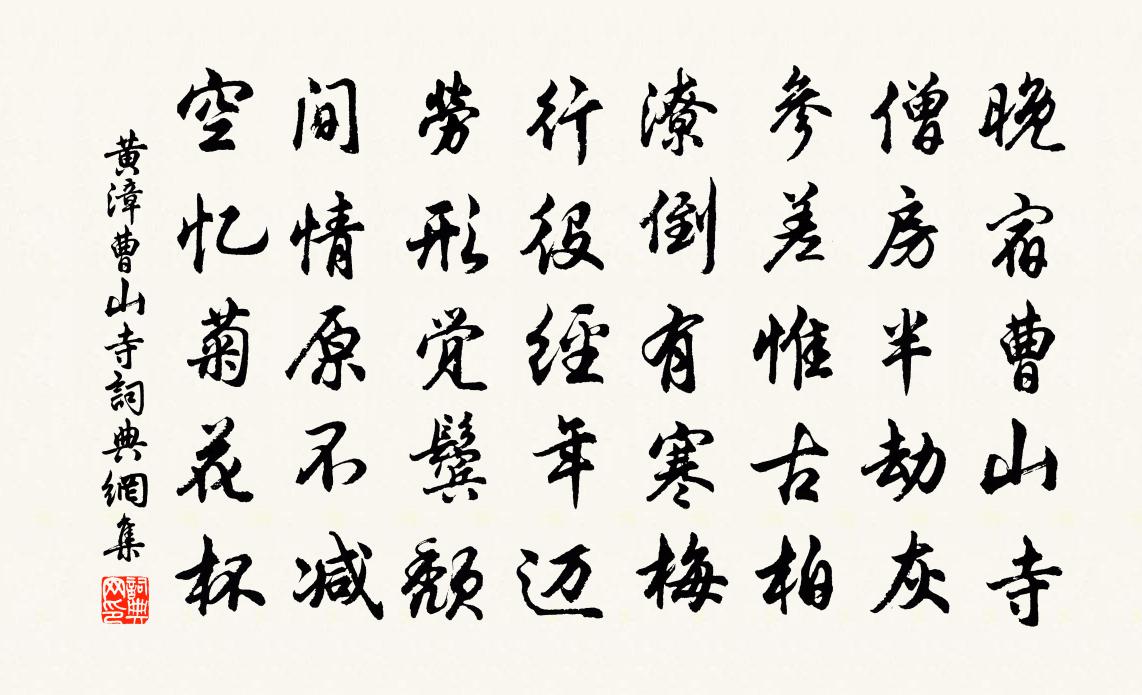 晚宿曹山寺
僧房半劫灰
參差惟古柏
潦倒有寒梅
行役經年迈
勞形覚鬓頹
间情原不减
空忆菊花杯
黃漳曹山寺詞典網集
詞典网印